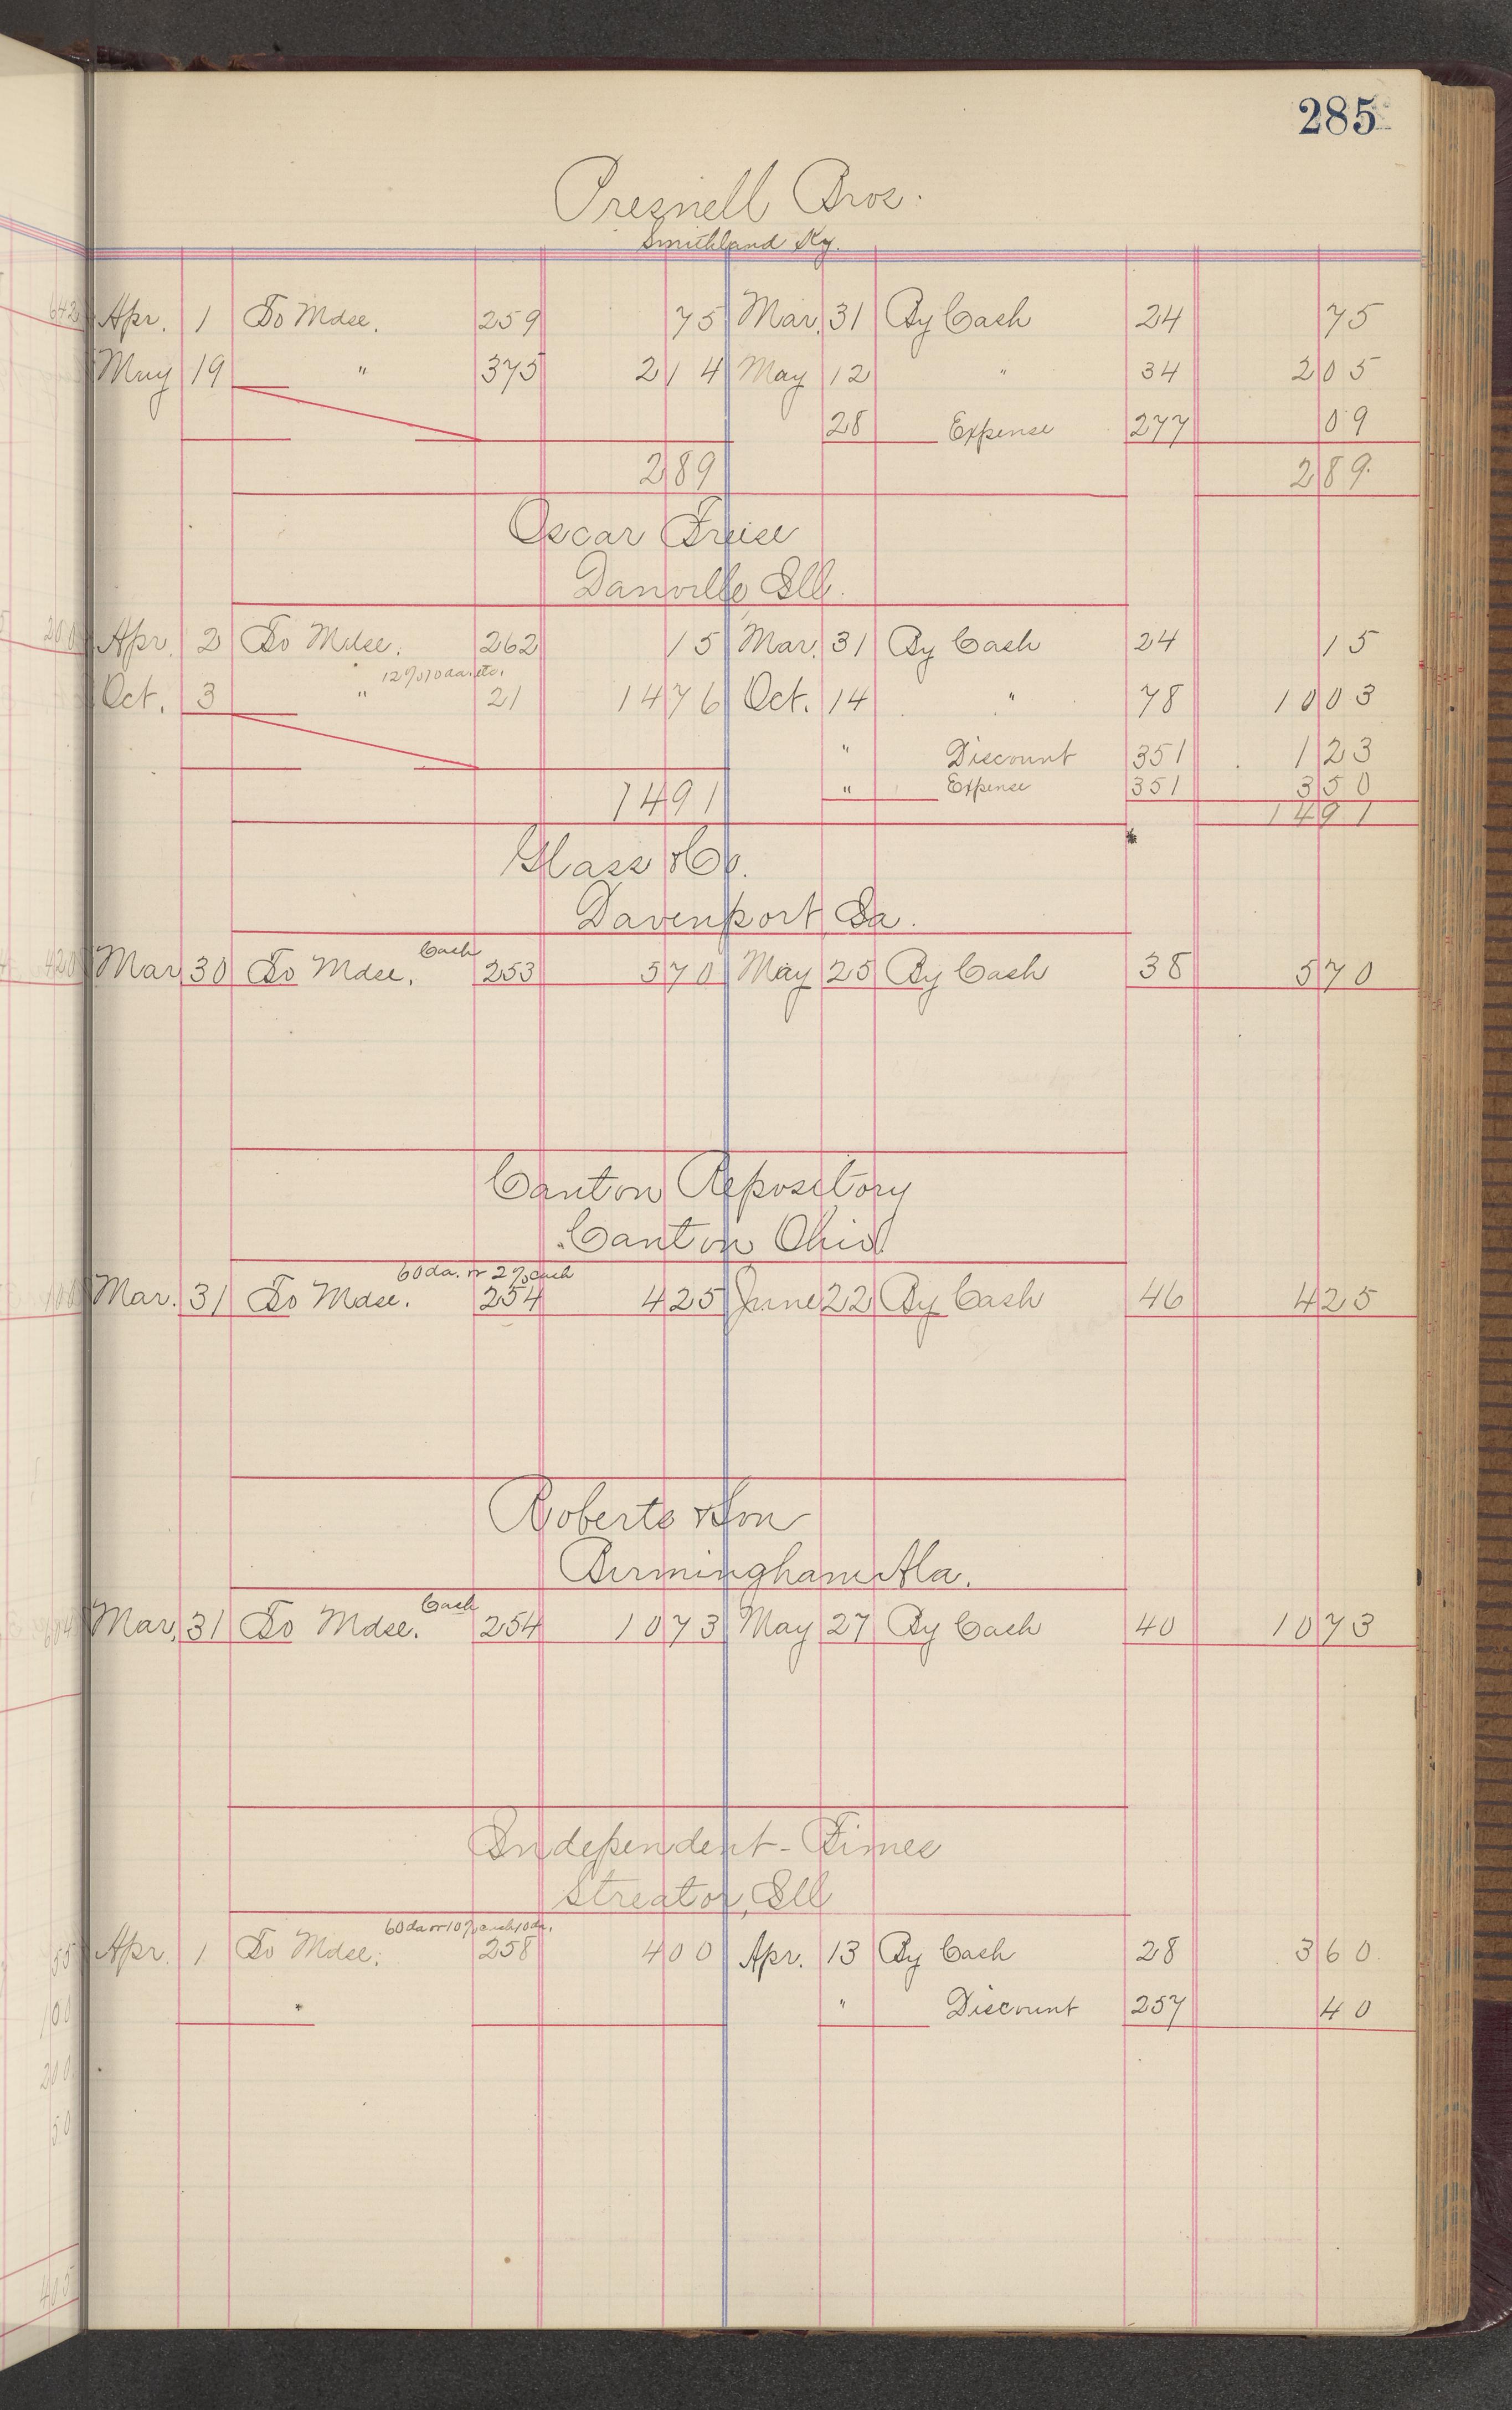 285
Presnell Bros.
Smithland Ky.
Apr. 1 To Mdse. 259 75 Mar. 31 By Cash 24 75
May 19 " 375 2 14 May 12 " 34 2 05
28 Expense 277 09
2 89 2 89
Oscar Freise
Danville Ill.
Apr. 2 To Mdse. 262 15 Mar. 31 By Cash 24 15
12% 10 da. etc.
Oct. 3 " 21 14 76 Oct. 14 " 78 10 03
" Discount 351 1 23
" Expense 351 3 50
14 91 14 91
Glass & Co.
Davenport, Ia.
Cash
Mar 30 To Mdse. 253 5 70 May 25 By Cash 38 5 70
Canton Repository
Canton Ohio
60 da. or 2% cash
Mar. 31 To Mdse. 254 4 25 June 22 By Cash 46 4 25
Roberts & Son
Birmingham Ala.
Cash
Mar. 31 To Mdse. 254 10 73 May 27 By Cash 40 10 73
Independent-Times
Streator, Ill
60 da or 10% cash 10 da.
Apr. 1 To Mdse. 258 4 00 Apr. 13 By Cash 28 3 60
" Discount 257 40